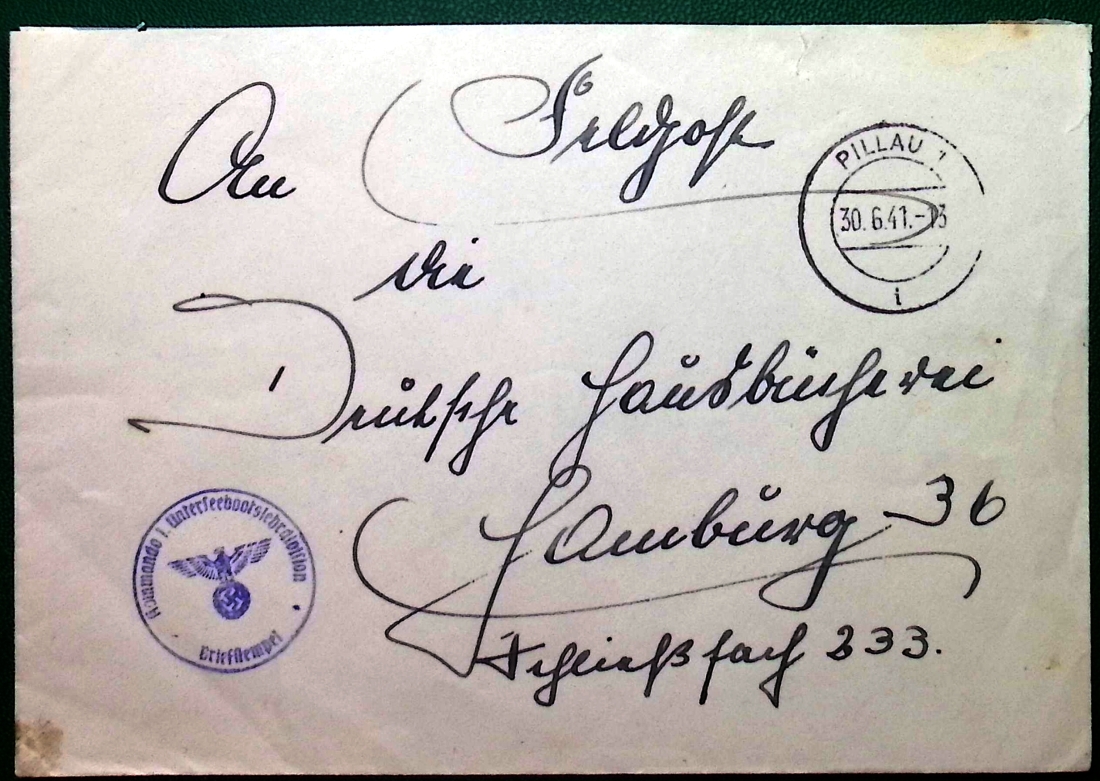 Feldpost
An
die
Deutsche Hausbücherei
Hamburg 36
Schließfach 233.
PILLAU 1
30.6.41.-13
i
Kommando 1. Unterseebootslehrdivision
Briefstempel